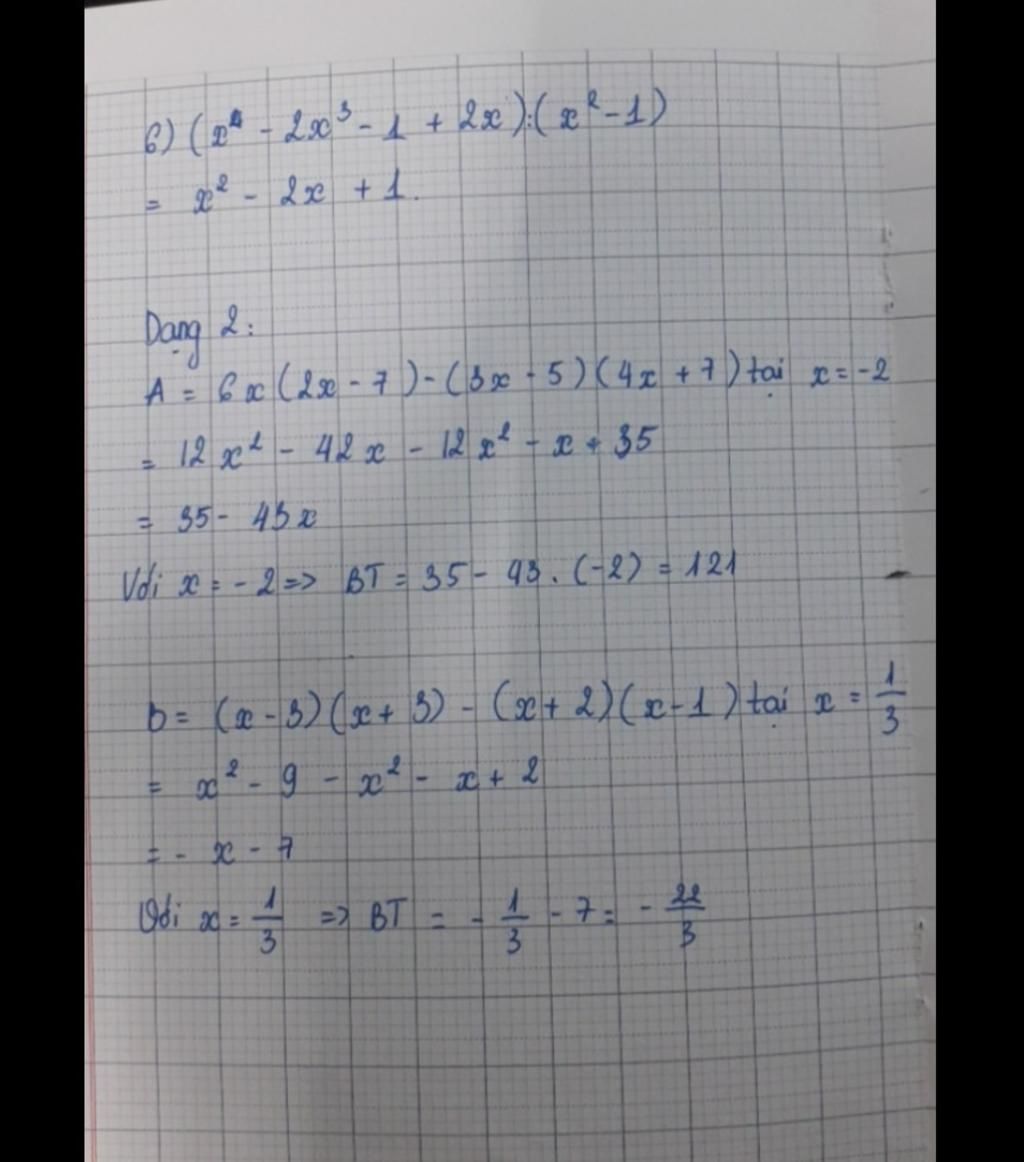 6) (x⁴ - 2x³ - 1 + 2x):(x² - 1)
= x² - 2x + 1.
Dạng 2:
A = 6x(2x - 7) - (3x - 5)(4x + 7) tại x = -2
= 12x² - 42x - 12x² - x + 35
= 35 - 43x
Với x = - 2 => BT = 35 - 43. (-2) = 121
b = (x - 3)(x + 3) - (x + 2)(x - 1) tại x = 1/3
= x² - 9 - x² - x + 2
= - x - 7
Với x = 1/3 => BT = - 1/3 - 7 = - 22/3